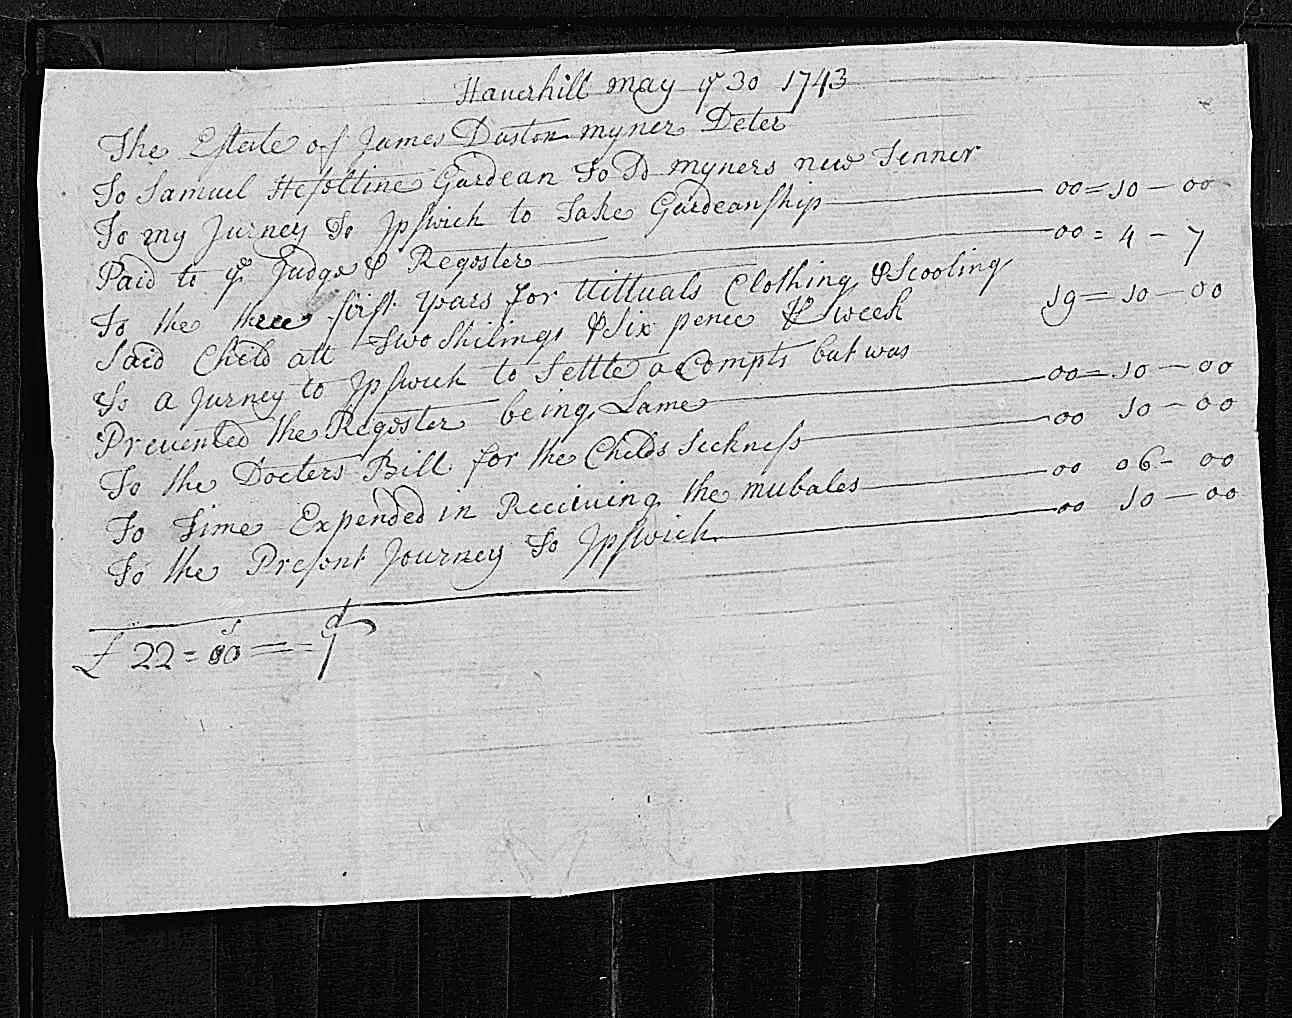 Haverhill may ye 30 1743
The Estate of James Duston myner Deter
To Samuel Heseltine Gardean To sd myners new Tenner
To my Jurney To Ipswich to Take Gardeanship — 00=10—00
Paid to ye Judge & Regoster — 00=4—7
To the three first years for Vittuals Clothing & Scooling
Said Child att Two Shilings & Six pence pr week 19=10—00
To a Jurney to Ipswich to Settle a Compts but was
Prevented the Regoster being Lame — 00=10—00
To the Docters Bill for the Childs Seckness — 00 10—00
To Time Expended in Receiving the mubales — 00 06—00
To the Present Journey To Ipswich — 00 10—00
£ 22=00s==7d